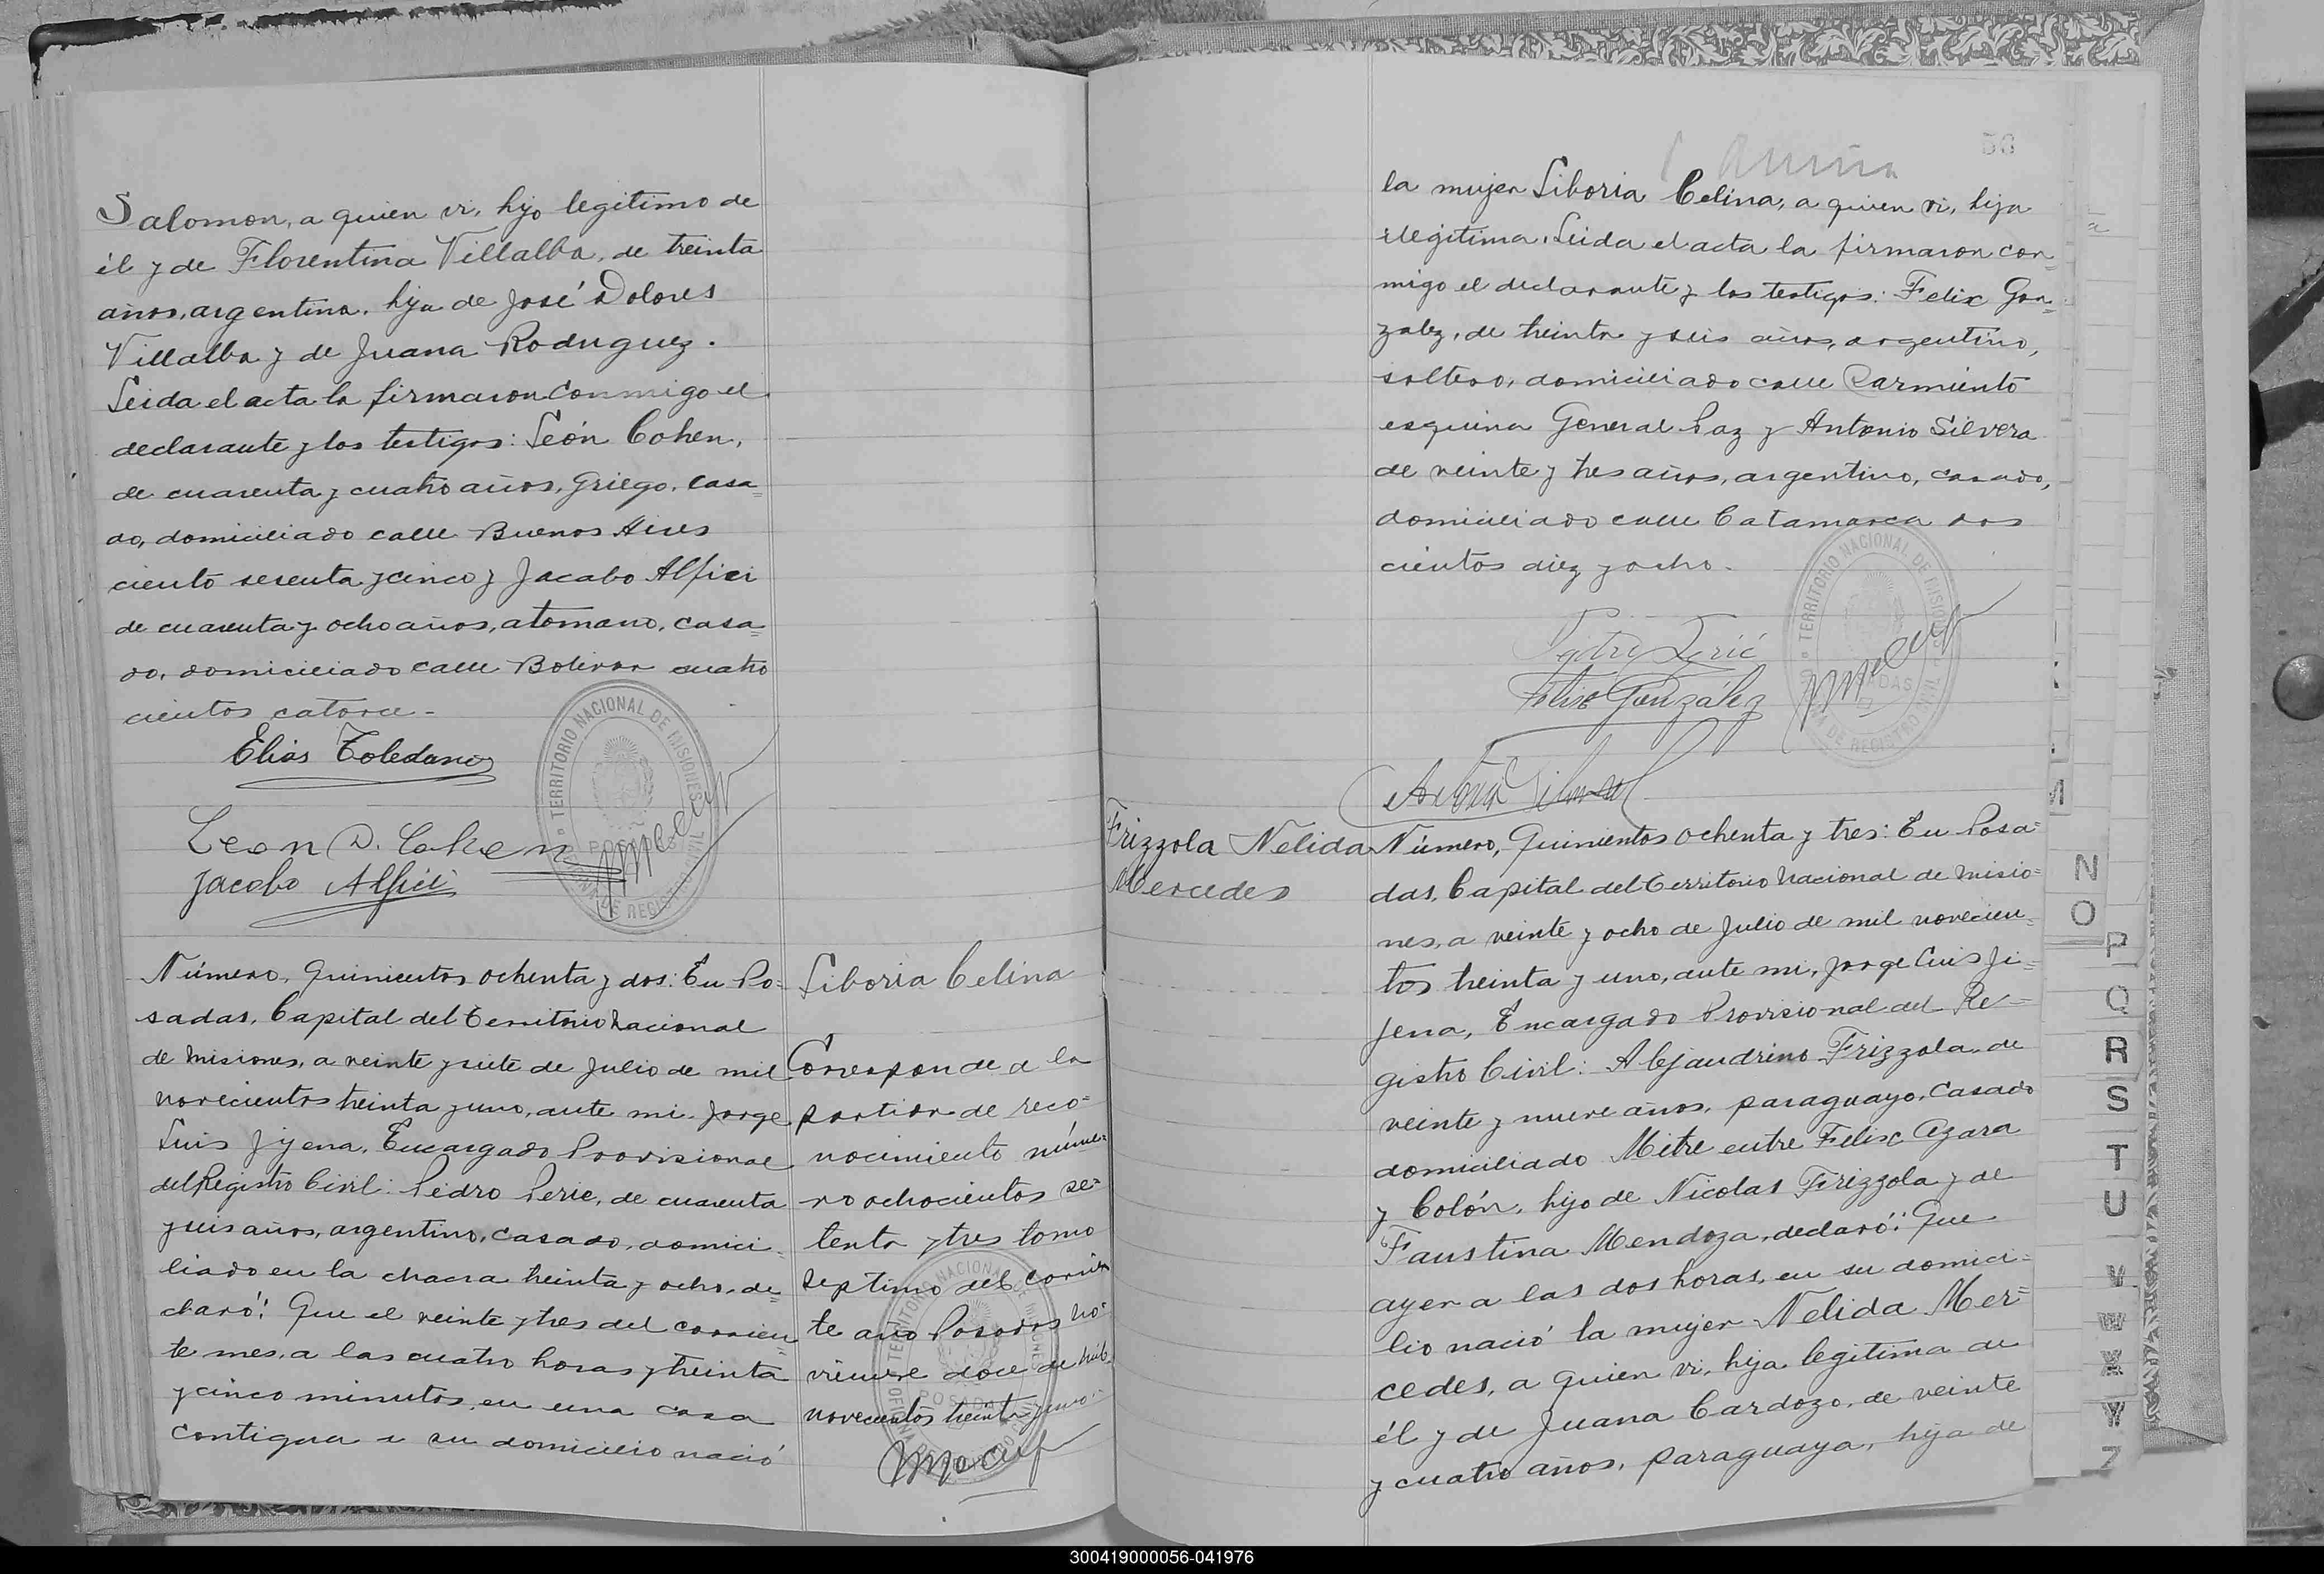 Salomon, a quien vi, hijo legitimo de
él y de Florentina Villalba, de treinta
años, argentina, hija de José Dolores
Villalba y de Juana Rodriguez.
Leida el acta la firmaron conmigo el
declarante y los testigos: León Cohen,
de cuarenta y cuatro años, griego, casa=
do, domiciliado calle Buenos Aires
ciento sesenta y cinco y Jacobo Alfici
de cuarenta y ocho años, otomano, casa=
do, domiciliado calle Bolivar cuatro
cientos catorce-
Elias Toledano
Leon D. Cohen
Jacobo Alfici
TERRITORIO NACIONAL DE MISIONES
POSADAS
OFICINA DE REGISTRO CIVIL
Número, Quinientos ochenta y dos: En Po=
sadas, Capital del Territorio Nacional
de Misiones, a veinte y siete de Julio de mil
novecientos treinta y uno, ante mi, Jorge
Luis Jijena, Encargado Provisional
del Registro Civil: Pedro Peric, de cuarenta
y seis años, argentino, casado, domici=
liado en la chacra treinta y ocho, de=
claró: Que el veinte y tres del corrien=
te mes, a las cuatro horas y treinta
y cinco minutos, en una casa
contigua a su domicilio nació
Liboria Celina
Corresponde a la
partida de reco=
nocimiento núme=
ro ochocientos se=
tenta y tres tomo
septimo del corrien
te año Posadas No=
viembre doce de mil
novecientos treinta y uno-
TERRITORIO NACIONAL DE MISIONES
POSADAS
50
la mujer Liboria Celina, a quien vi, hija
ilegitima. Leida el acta la firmaron con=
migo el declarante y los testigos: Felix Gon=
zalez, de treinta y seis años, argentino,
soltero, domiciliado calle Sarmiento
esquina General Paz y Antonio Silvera
de veinte y tres años, argentino, casado,
domiciliado calle Catamarca dos
cientos diez y ocho.
Pedro Peric
Felix González
TERRITORIO NACIONAL DE MISIONES
POSADAS
OFICINA DE REGISTRO CIVIL
Frizzola Nelida
Mercedes
Número, Quinientos ochenta y tres: En Posa=
das, Capital del Territorio Nacional de Misio=
nes, a veinte y ocho de Julio de mil novecien=
tos treinta y uno, ante mi, Jorge Luis Ji=
jena, Encargado Provisional del Re=
gistro Civil: Alejandrino Frizzola, de
veinte y nueve años, paraguayo, casado
domiciliado Mitre entre Felix Azara
y Colón, hijo de Nicolas Frizzola y de
Faustina Mendoza, declaró: Que
ayer a las dos horas, en su domici=
lio nació la mujer Nelida Mer=
cedes, a quien vi, hija legitima de
él y de Juana Cardozo, de veinte
y cuatro años, paraguaya, hija de
M
N
O
P
Q
R
S
T
U
V
W
X
Y
Z
300419000056-041976